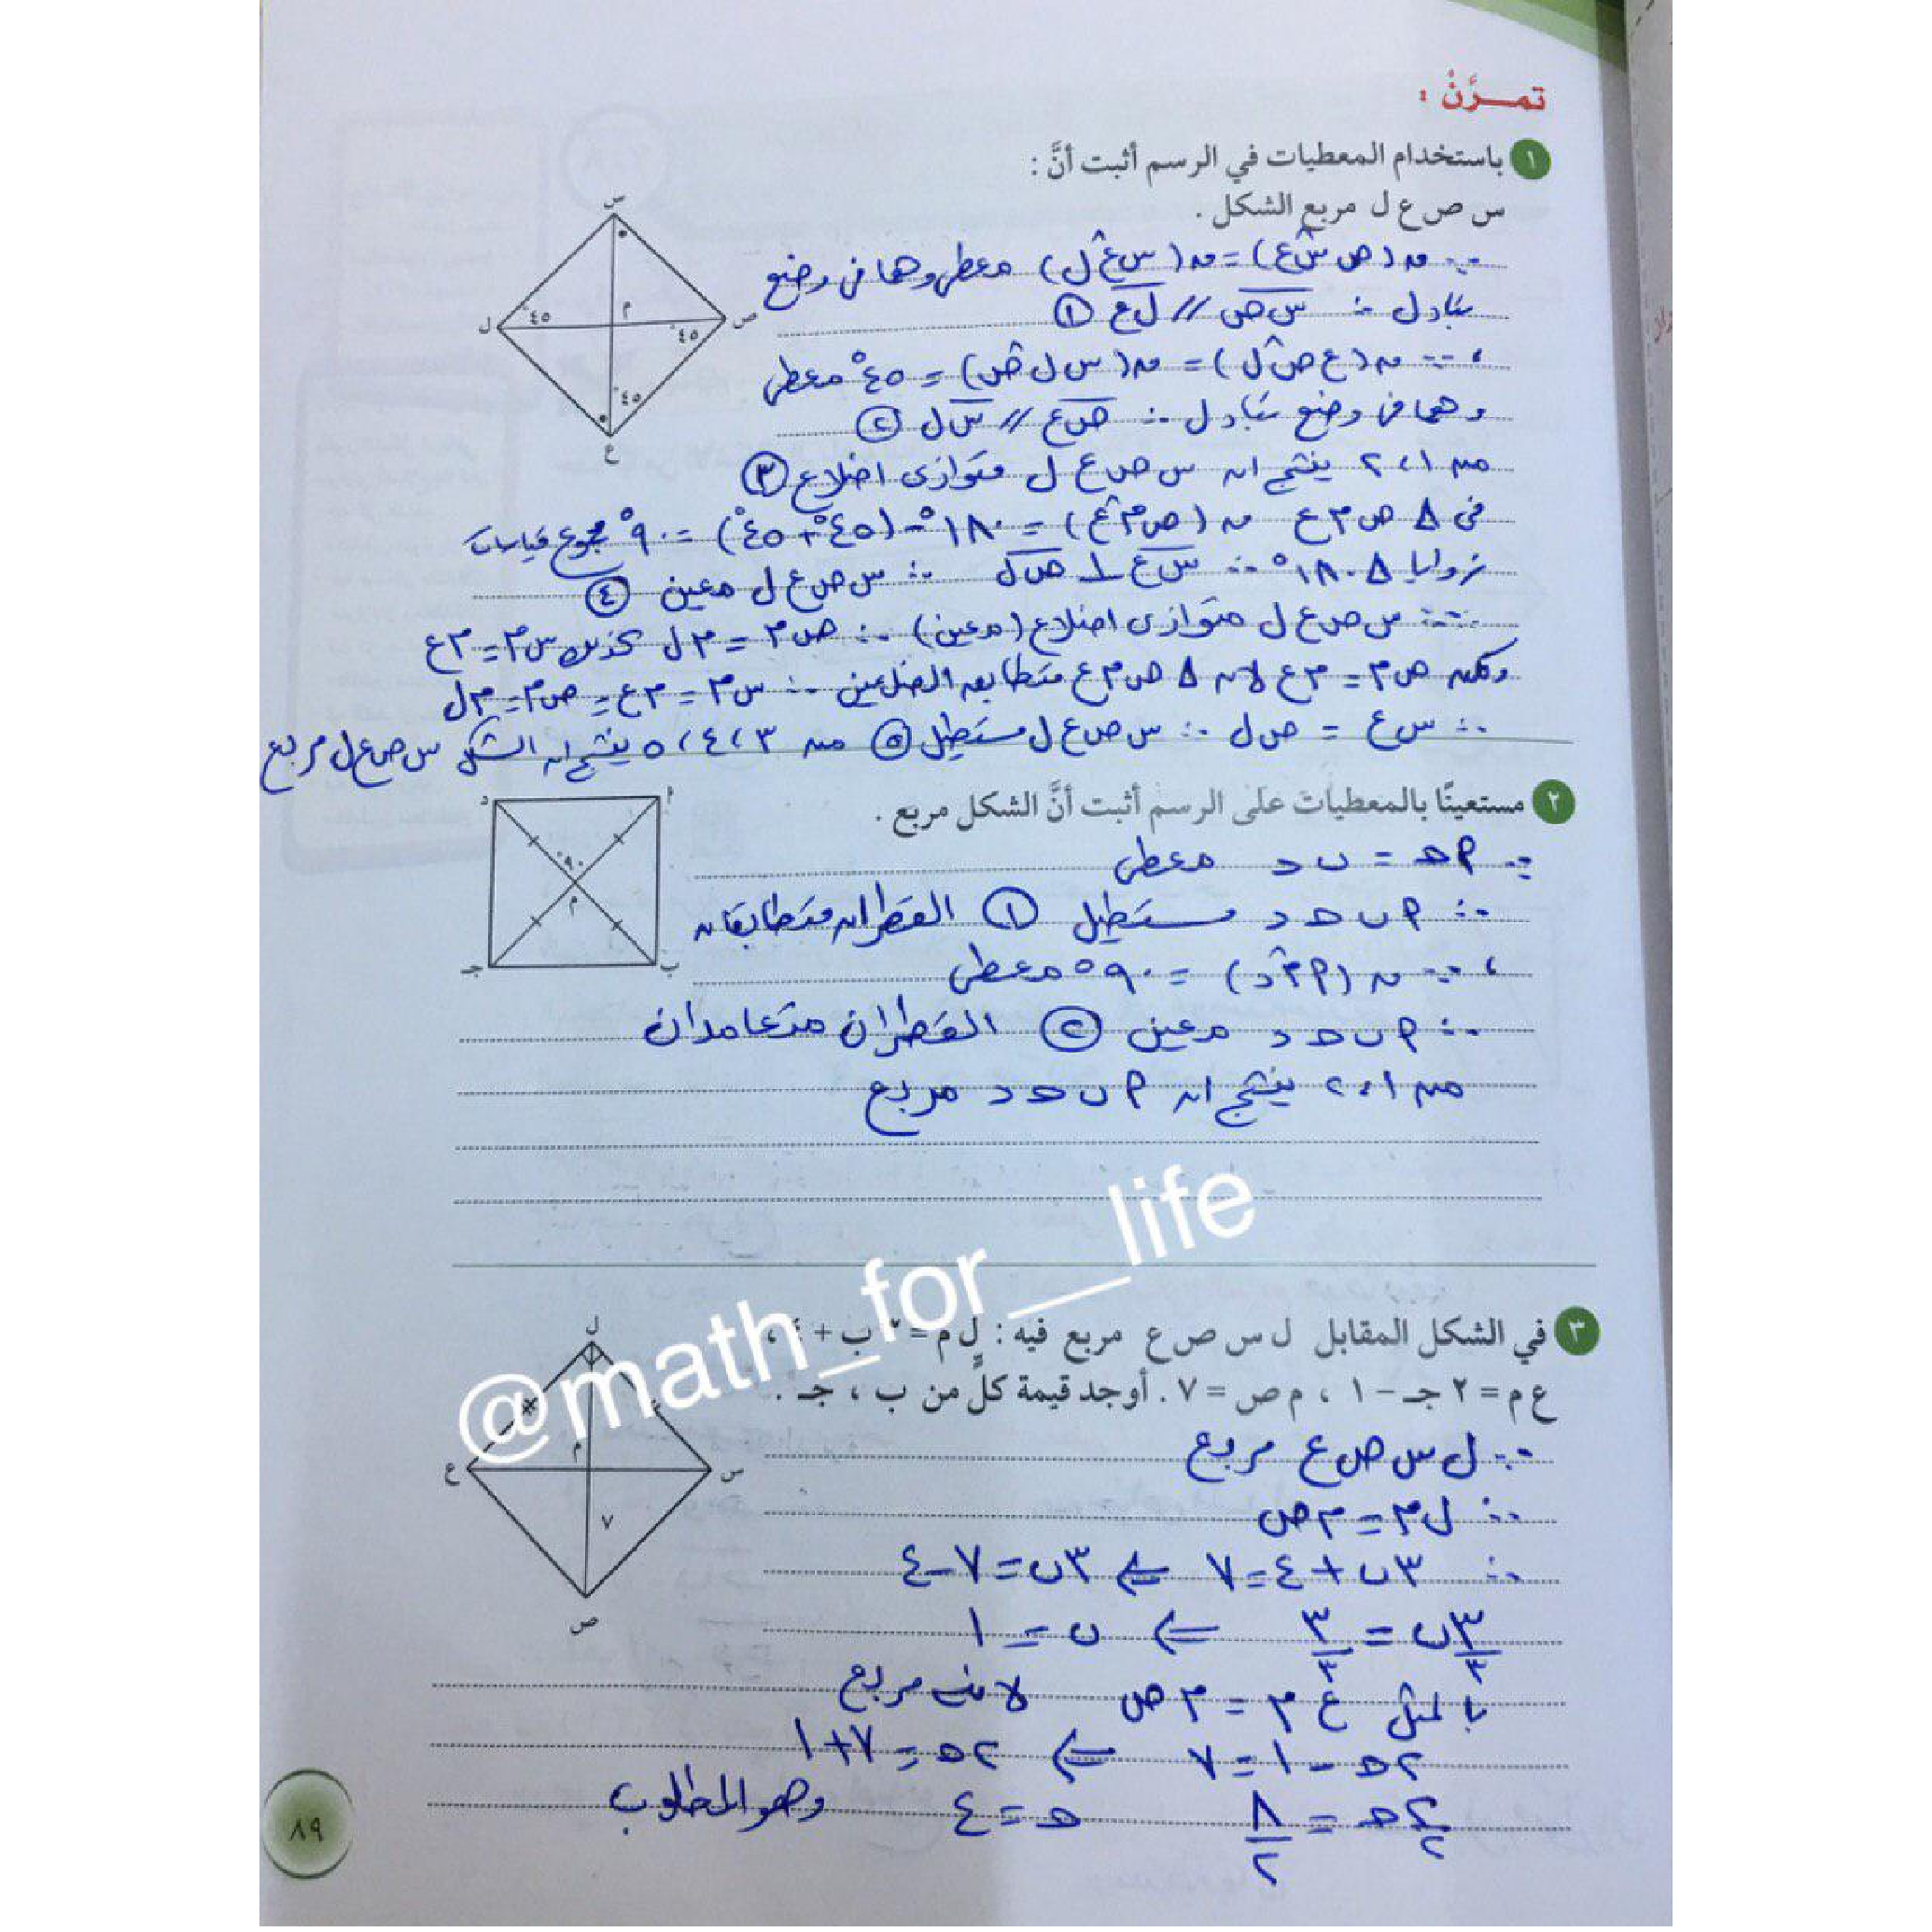 تمـــرَّنْ :
١ باستخدام المعطيات في الرسم أثبت أنَّ :
س ص ع ل مربع الشكل .
∵ ق(ص س ع) = ق(س ع ل) معطى وهما في وضع
تبادل ∴ س ص // ل ع ①
، ∵ ق(ع ص ل) = ق(س ل ص) = ٤٥° معطى
وهما في وضع تبادل ∴ ص ع // س ل ②
من ١ ، ٢ ينتج ان س ص ع ل متوازى اضلاع ③
فى Δ ص م ع ق(ص م ع) = ١٨٠° − (٤٥° + ٤٥°) = ٩٠° مجموع قياسات
زوايا Δ ١٨٠° ∴ س ع ⊥ ص ل ∴ س ص ع ل معين ④
∵ س ص ع ل متوازى اضلاع (معين) ∴ ص م = م ل كذلك س م = م ع
ولكن ص م = م ع لان Δ ص م ع متطابق الضلعين ∴ س م = م ع = ص م = م ل
∴ س ع = ص ل ∴ س ص ع ل مستطيل ⑤ من ٣ ، ٤ ، ٥ ينتج ان الشكل س ص ع ل مربع
س
ل
ص
م
ع
٤٥
٤٥
٤٥
٢ مستعينًا بالمعطيات على الرسم أثبت أنَّ الشكل مربع .
∵ أ حـ = ب د معطى
∴ أ ب حـ د مستطيل ① القطران متطابقان
، ∵ ق(أ م د) = ٩٠° معطى
∴ أ ب حـ د معين ② القطران متعامدان
من ١ ، ٢ ينتج ان أ ب حـ د مربع
د
أ
٩٠°
م
جـ
ب
@math_for__life
٣ في الشكل المقابل ل س ص ع مربع فيه : ل م = ٣ ب + ٤ ،
ع م = ٢ جـ − ١ ، م ص = ٧ . أوجد قيمة كلٍّ من ب ، جـ .
∵ ل س ص ع مربع
∴ ل م = م ص
∴ ٣ب + ٤ = ٧ ⇐ ٣ب = ٧ − ٤
٣ب/٣ = ٣/٣ ⇐ ب = ١
بالمثل ع م = م ص لانه مربع
٢حـ − ١ = ٧ ⇐ ٢حـ = ٧ + ١
٢حـ/٢ = ٨/٢ حـ = ٤ وهو المطلوب
ل
ع
م
س
٧
ص
٨٩